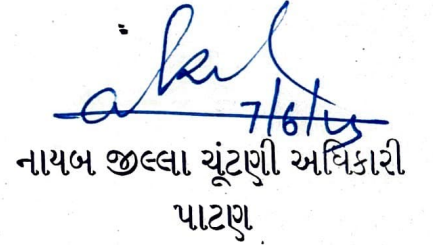 નાયબ જીલ્લા ચૂંટણી અધિકારી
પાટણ